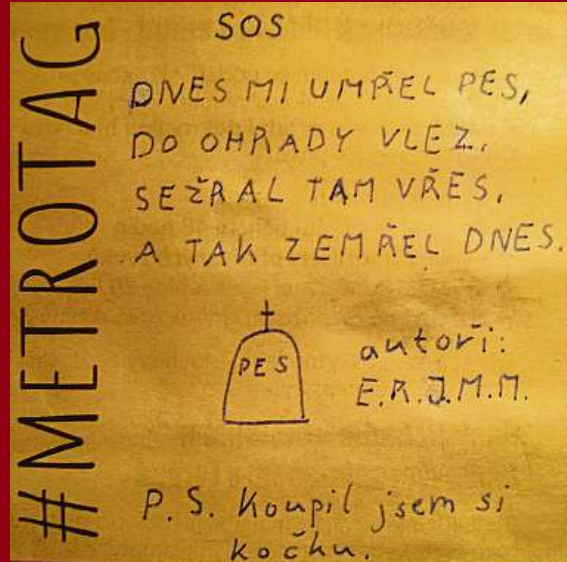 #METROTAG
SOS
DNES MI UMŘEL PES,
DO OHRADY VLEZ,
SEŽRAL TAM VŘES,
A TAK ZEMŘEL DNES.
PES
autoři:
E.R.J.M.M.
P.S. Koupil jsem si
kočku.